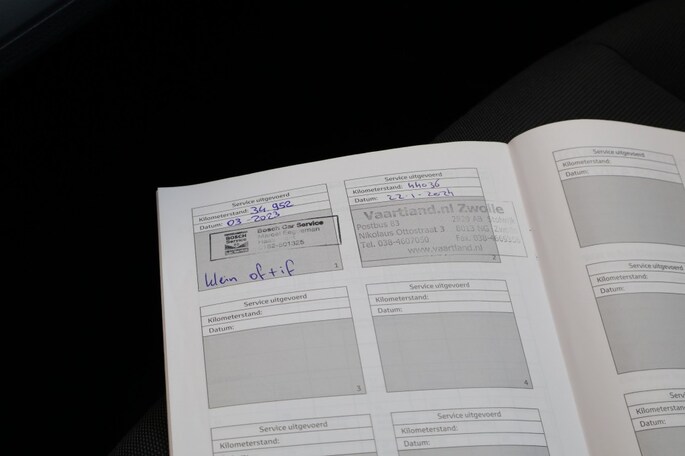 Service uitgevoerd
Kilometerstand: 34.952
Datum: 03-2023
BOSCH
Service
Bosch Car Service
klein oftif
1
Service uitgevoerd
Kilometerstand: 44036
Datum: 22-1-2024
Vaartland.nl Zwolle
Postbus 83
Nikolaus Ottostraat 3
Tel. 038-4607050
www.vaartland.nl
2
Service uitgevoerd
Kilometerstand:
Datum:
3
Service uitgevoerd
Kilometerstand:
Datum:
4
Service uitgevoerd
Kilometerstand:
Service uitgevoerd
Kilometerstand:
Datum:
Service uitgevoerd
Kilometerstand:
Datum:
Service uitgevoerd
Kilometerstand:
Datum:
Service
Kilometerstand:
Datum: